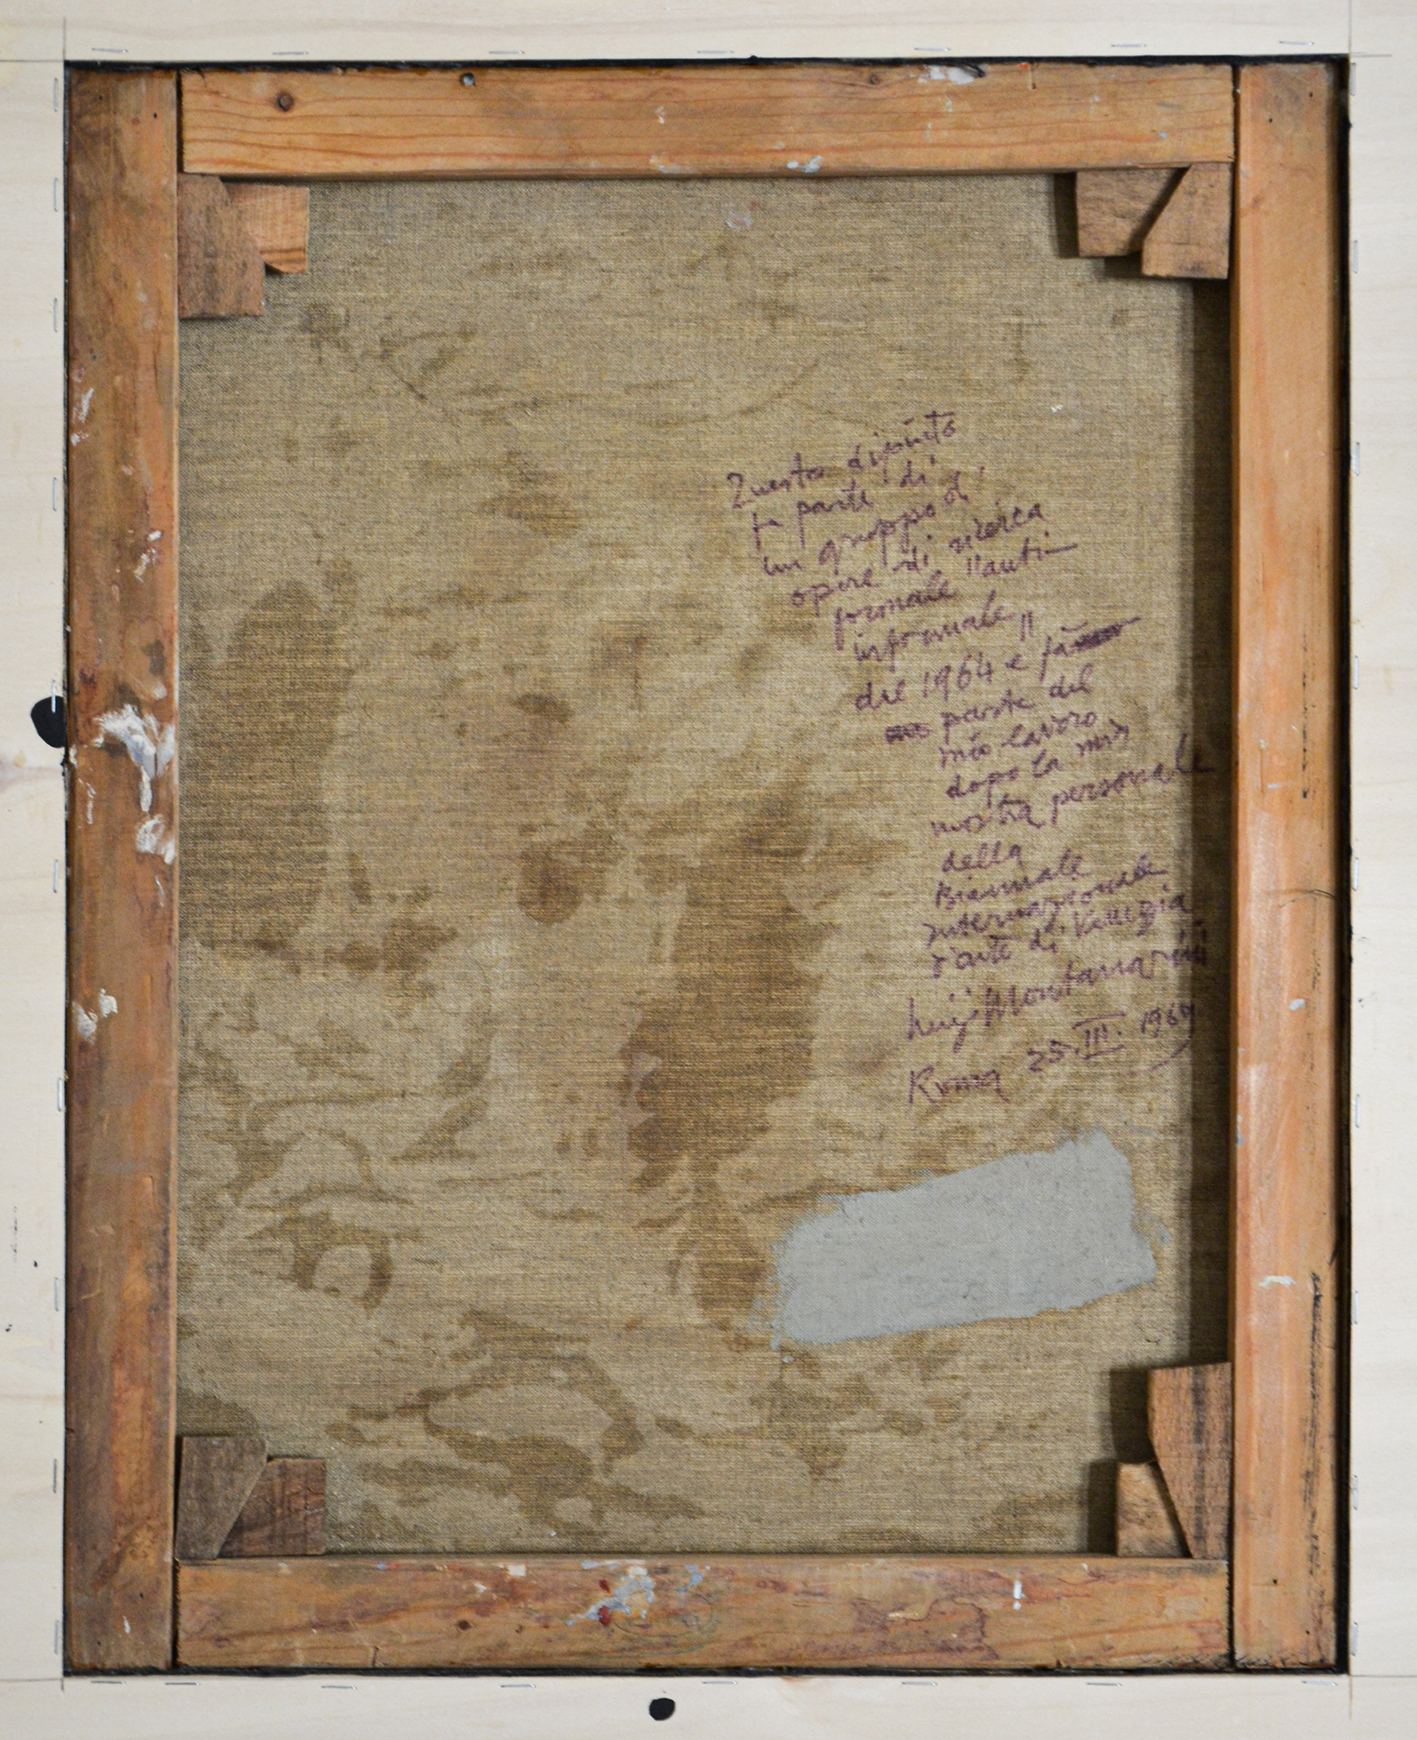 Questo dipinto
fa parte di
un gruppo di
opere di ricerca
formale "anti-
informale"
del 1964 e fa
parte del
mio lavoro
dopo la mia
mostra personale
della
Biennale
internazionale
d'arte di Venezia
Luigi Montanarini
Roma 25.III.1969